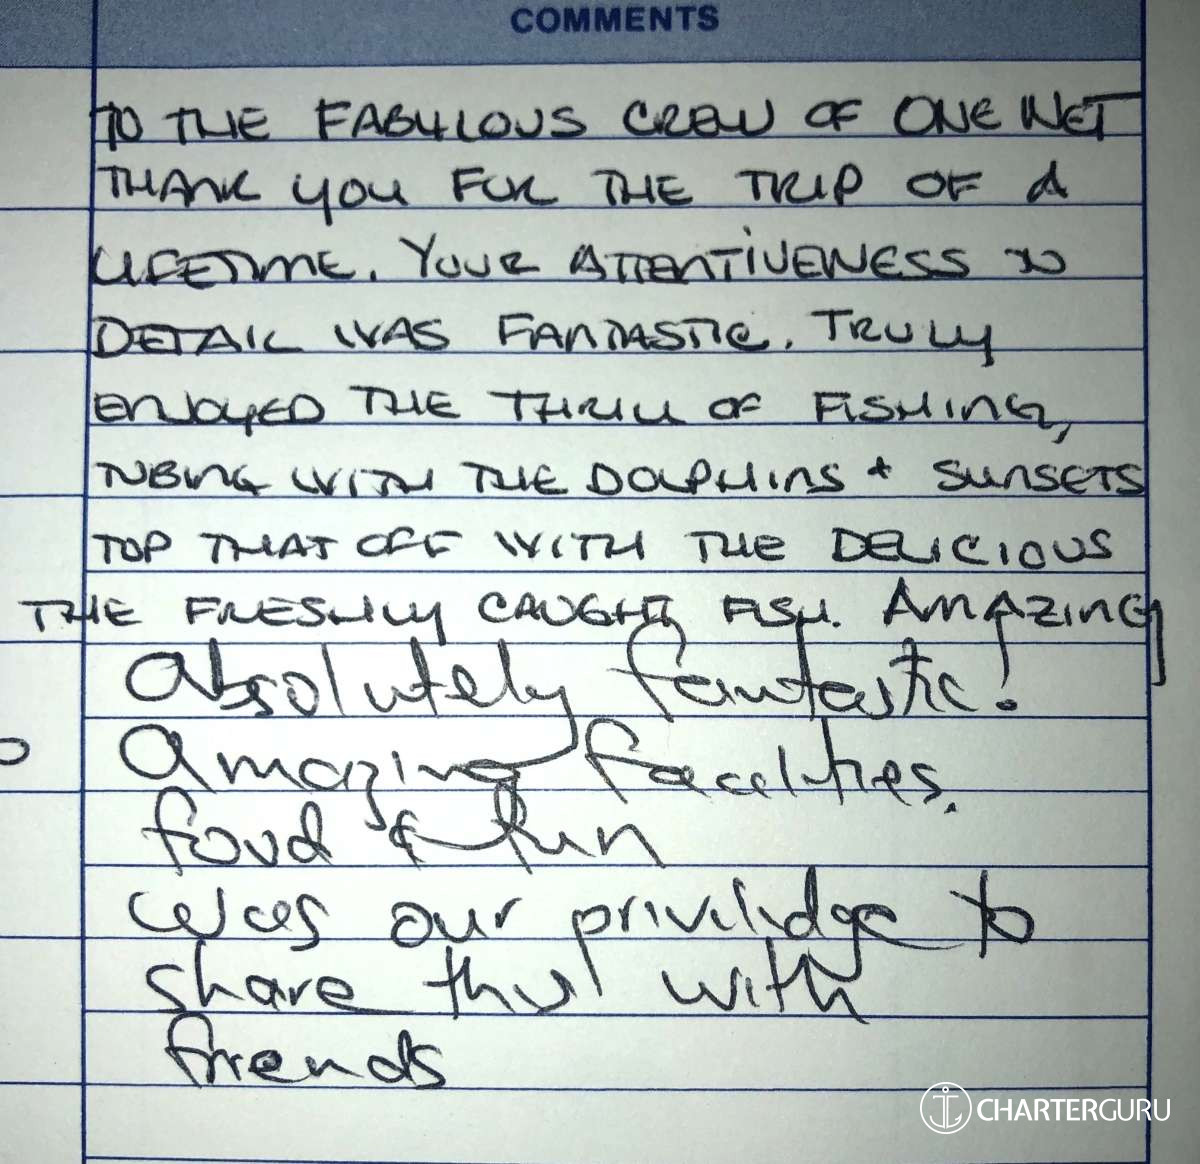 COMMENTS
TO THE FABULOUS CREW OF ONE NET
THANK YOU FOR THE TRIP OF A
LIFETIME. YOUR ATTENTIVENESS TO
DETAIL WAS FANTASTIC. TRULY
ENJOYED THE THRILL OF FISHING,
TUBING WITH THE DOLPHINS + SUNSETS
TOP THAT OFF WITH THE DELICIOUS
THE FRESHLY CAUGHT FISH. AMAZING
Absolutely fantastic!
Amazing facilities.
food & fun
Was our privilidge to
share this with
friends
CHARTERGURU